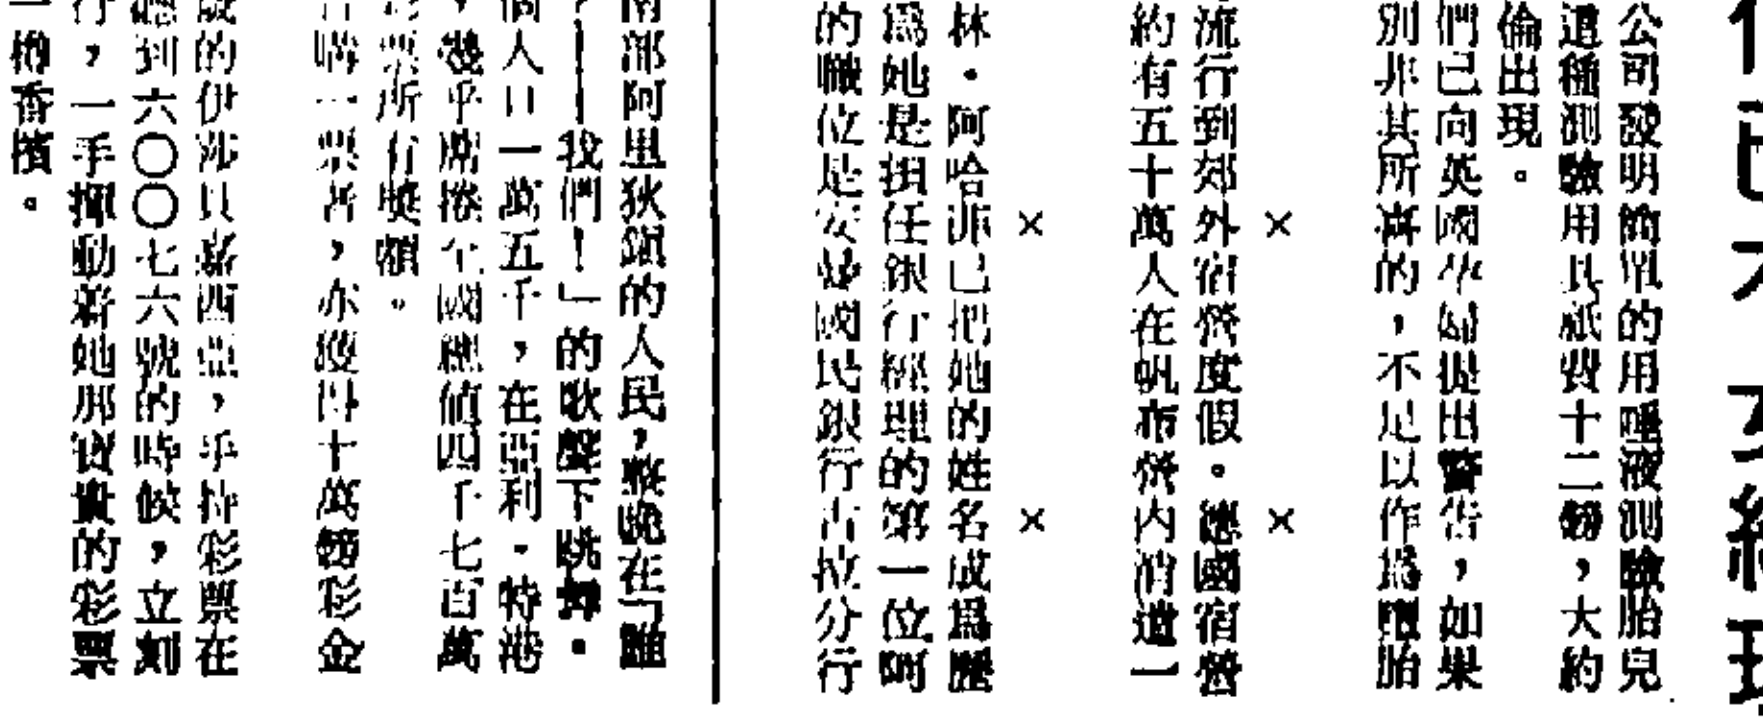 公司發明簡單的用唾液測驗胎兒
這種測驗用具祇費十二鎊，大約
倫出現。
們已向英國孕婦提出警告，如果
別非其所喜的，不足以作爲墮胎
流行到郊外宿營度假。德國宿營
約有五十萬人在帆布營內消遣一
×　×
林・阿哈 已把她的姓名成爲歷
爲她是担任銀行經理的第一位阿
的職位是安 國民銀行吉拉分行
×　×
南部阿里狄鎭的人民，整晚在「誰
？——我們！」的歌聲下跳舞。
個人口一萬五千，在亞利・特港
，幾乎席捲全國總值四千七百萬
彩票所有獎額。
購一票者，亦獲得十萬鎊彩金
歲的伊莎貝嘉西亞，手持彩票在
聽到六〇〇七六號的時候，立刻
行，一手揮動着她那寶貴的彩票
一樽香檳。